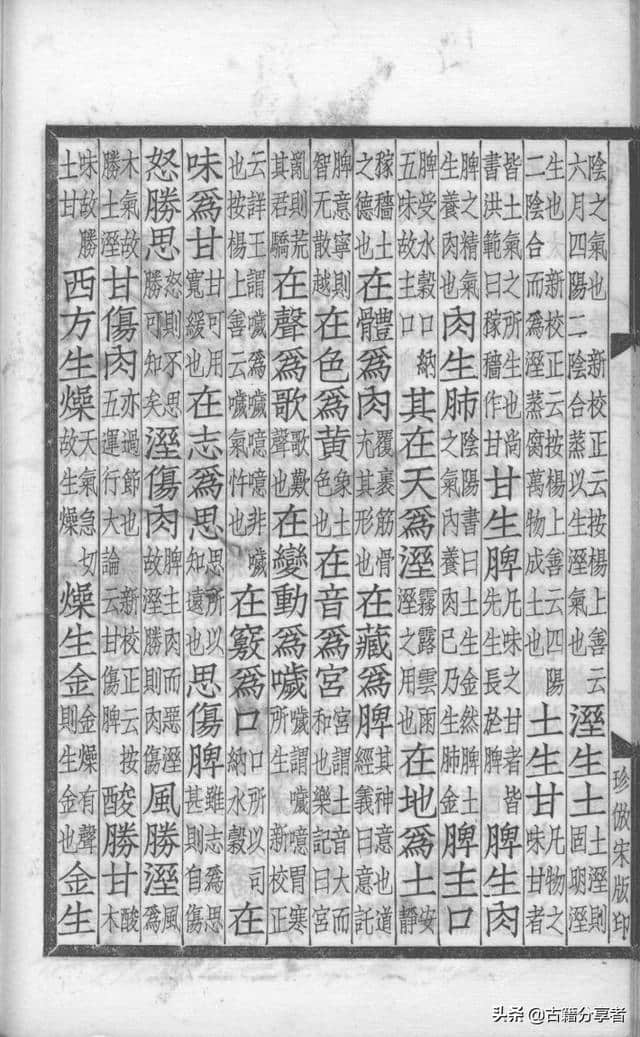 陰之氣也新校正云按楊上善云六月四陽二陰合蒸以生溼氣也溼生土土溼則固明溼
生也新校正云按楊上善云四陽二陰合而為溼蒸腐萬物成土也土生甘凡物之味甘者
皆土氣之所生也尚書洪範曰稼穡作甘甘生脾凡味之甘者皆先生長於脾脾生肉
脾之精氣生養肉也肉生肺陰陽書曰土生金然脾土之氣內養肉已乃生肺金脾主口
脾受水穀口納五味故主口其在天為溼霧露雲雨溼之用也在地為土安靜
稼穡土也之德也在體為肉覆裹筋骨充其形也在藏為脾其神意也道經義曰意託
脾意寧則智无散越在色為黃象土色也在音為宮宮謂土音大而和也樂記曰宮
亂則荒其君驕在聲為歌歌歎聲也在變動為噦噦謂噦噫胃寒所生新校正
云詳王謂噦為噦噫噫非噦也按楊上善云噦氣忤也在竅為口口所以司納水穀在
味為甘甘可用寬緩也在志為思思所以知遠也思傷脾雖志為思甚則自傷
怒勝思怒則不思勝可知矣溼傷肉脾主肉而惡溼故溼勝則肉傷風勝溼風為
木氣故勝土溼甘傷肉亦過節也新校正云按五運行大論云甘傷脾酸勝甘酸木
味故勝土甘西方生燥天氣急切故生燥燥生金金燥有聲則生金也金生
珍倣宋版印
头条@古籍分享者